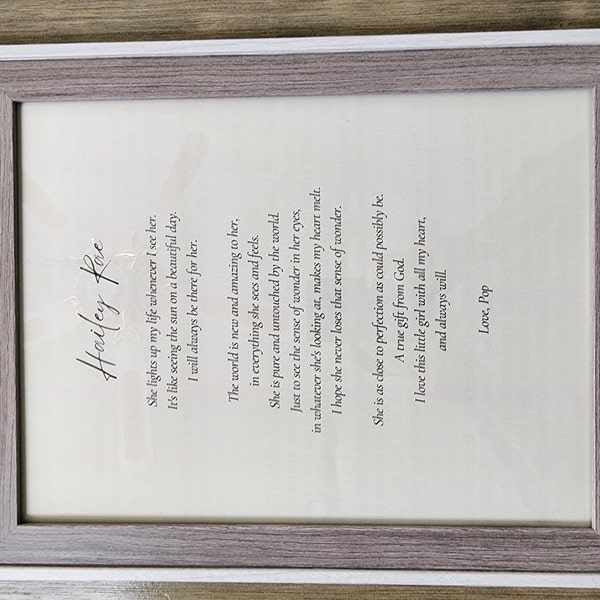 Hailey Rae
She lights up my life whenever I see her.
It's like seeing the sun on a beautiful day.
I will always be there for her.
The world is new and amazing to her,
in everything she sees and feels.
She is pure and untouched by the world.
Just to see the sense of wonder in her eyes,
in whatever she's looking at, makes my heart melt.
I hope she never loses that sense of wonder.
She is as close to perfection as could possibly be.
A true gift from God.
I love this little girl with all my heart,
and always will.
Love, Pop